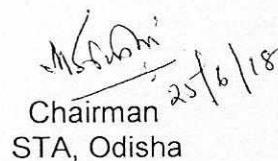 25/6/18
Chairman
STA, Odisha